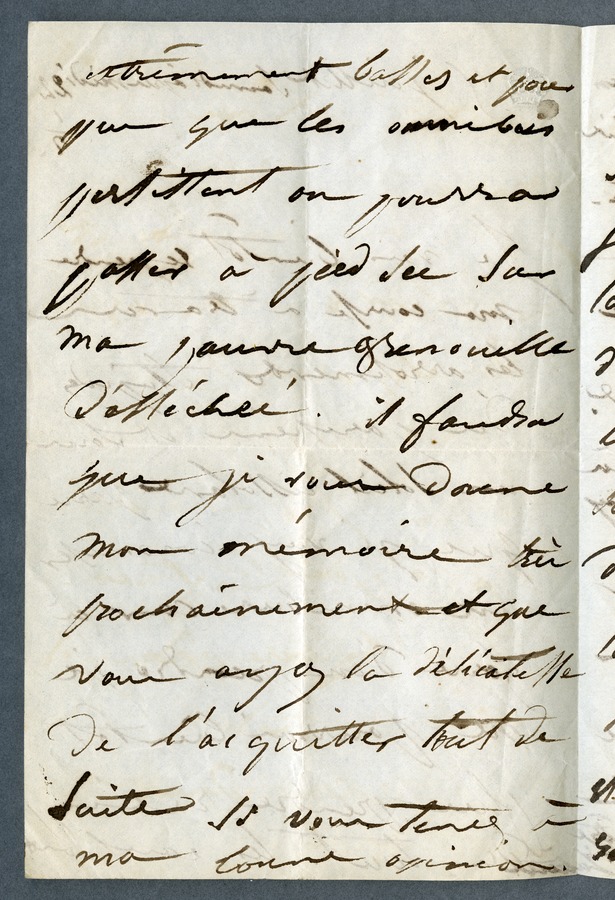 extrêmement basses et pour
peu que les omnibus
persistent on pourra
passer à pied sec sur
ma pauvre grenouille
désséchée. il faudra
que je vous donne
mon mémoire très
prochainement et que
vous ayez la délicatesse
de l'acquitter tout de
suite si vous tenez à
ma bonne opinion.